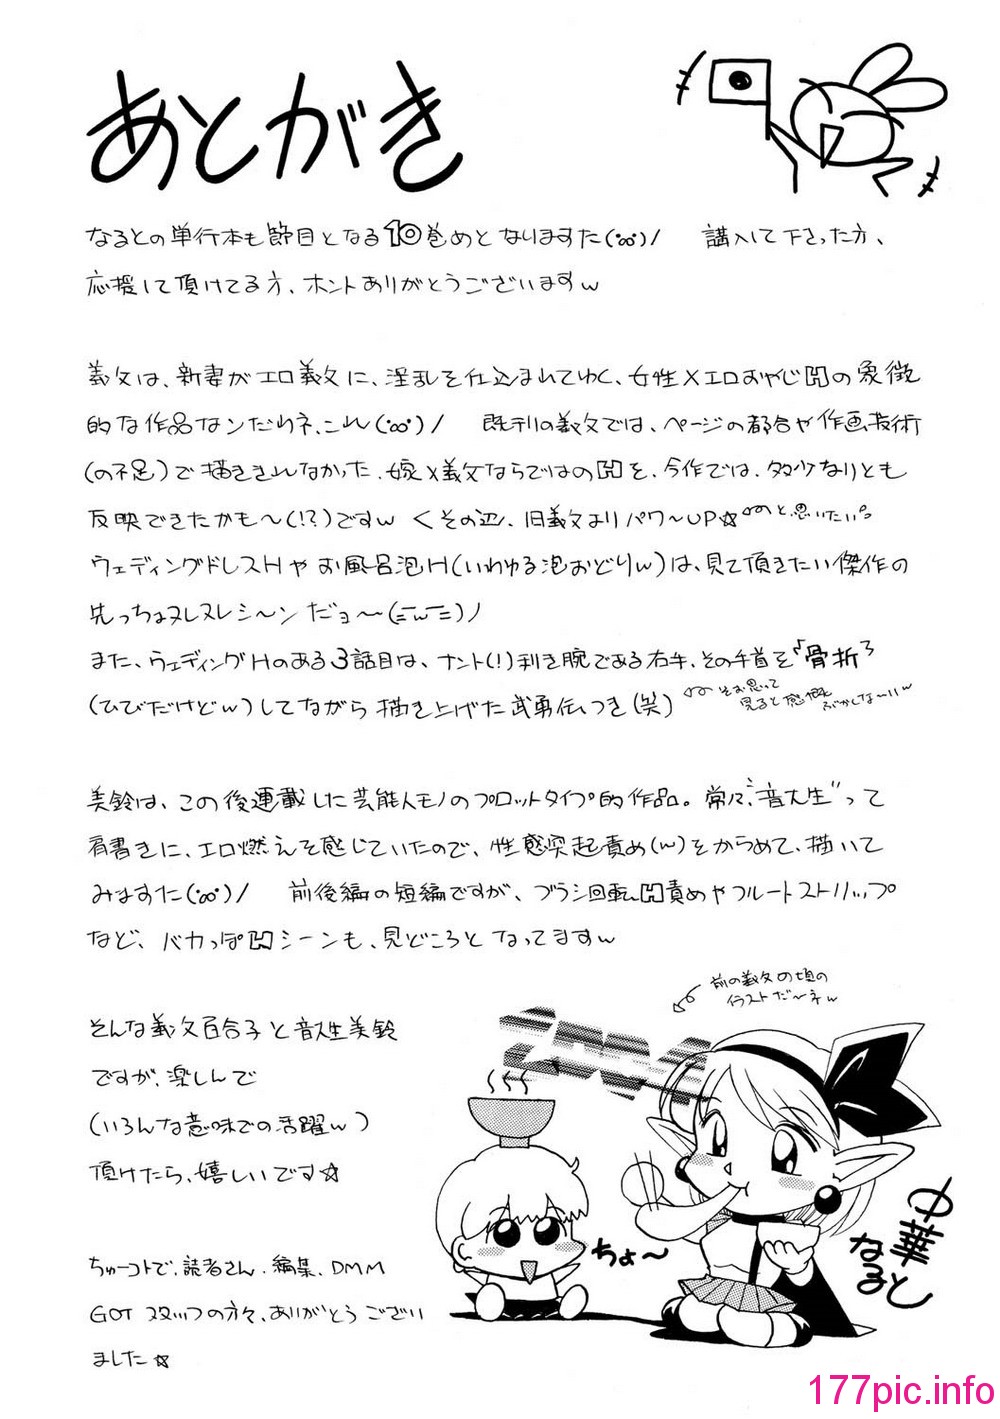 あとがき
なるとの単行本も節目となる10巻めとなりますた(·∞·)/　購入して下さった方、
応援して頂けてる方、ホントありがとうございますw
義父は、新妻がエロ義父に、淫乱を仕込まれてゆく、女性×エロおやじHの象徴
的な作品なンだわネ、これ(·∞·)/　既刊の義父では、ページの都合や作画技術
(の不足)で描ききれなかった、嫁×義父ならではのHを、今作では、多少なりとも
反映できたかも～(!?)ですw くその辺、旧義父よりパワ～UP☆ と思いたい。
ウェディングドレスHや お風呂泡H(いわゆる泡おどりw)は、見て頂きたい傑作の
先っちょヌレヌレシ～ンだョ～(=w=)ノ
また、ウェディングHのある3話目は、ナント(!)利き腕である右手、その手首を「骨折」
(ひびだけどw)してながら描き上げた武勇伝つき(笑)
そお思って
見ると感慨
ぶかしな～いw
美鈴は、この後連載した芸能人モノのプロットタイプ的作品。常々、"音大生"って
肩書きに、エロ燃えを感じていたので、性感突起責め(w)をからめて、描いて
みますた(·∞·)/　前後編の短編ですが、ブラシ回転H責めやフルートストリップ
など、バカっぽHシーンも、見どころとなってますw
前の義父の頃の
イラストだ～ネw
そんな義父百合子と音大生美鈴
ですが、楽しんで
(いろんな意味での活躍w)
頂けたら、嬉しいです☆
ちゅーコトで、読者さん、編集、DMM
GOT スタッフの方々、ありがとうござい
ました☆
ちょ～
中華
なると
177pic.info